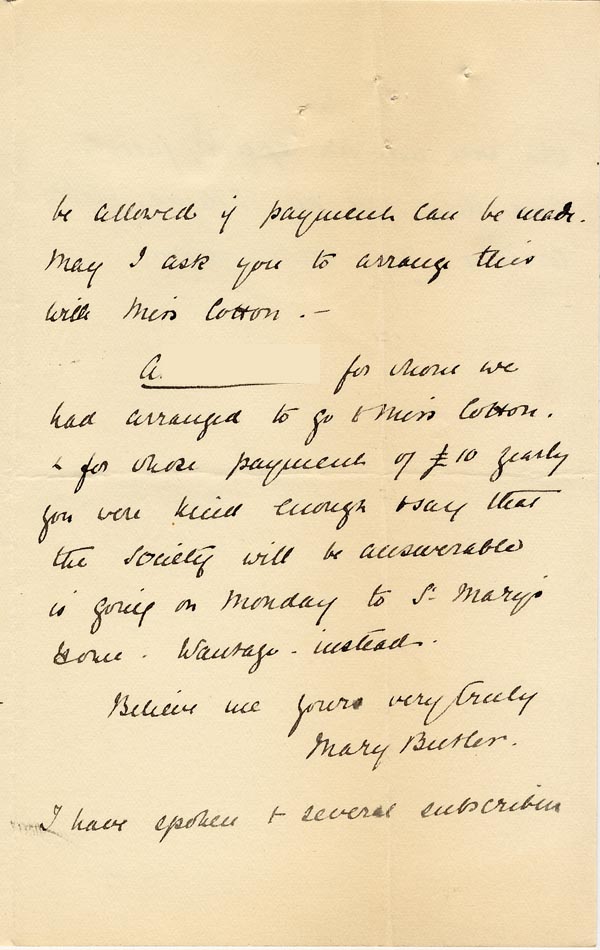 be allowed if payment can be made.
May I ask you to arrange this
with Miss Cotton. —
A. for whom we
had arranged to go to Miss Cotton.
& for whose payment of £10 yearly
you were kind enough to say that
the Society will be answerable
is going on Monday to St Mary's
Home. Wantage. instead.
Believe me yours very truly
Mary Butler.
I have spoken to several subscribers